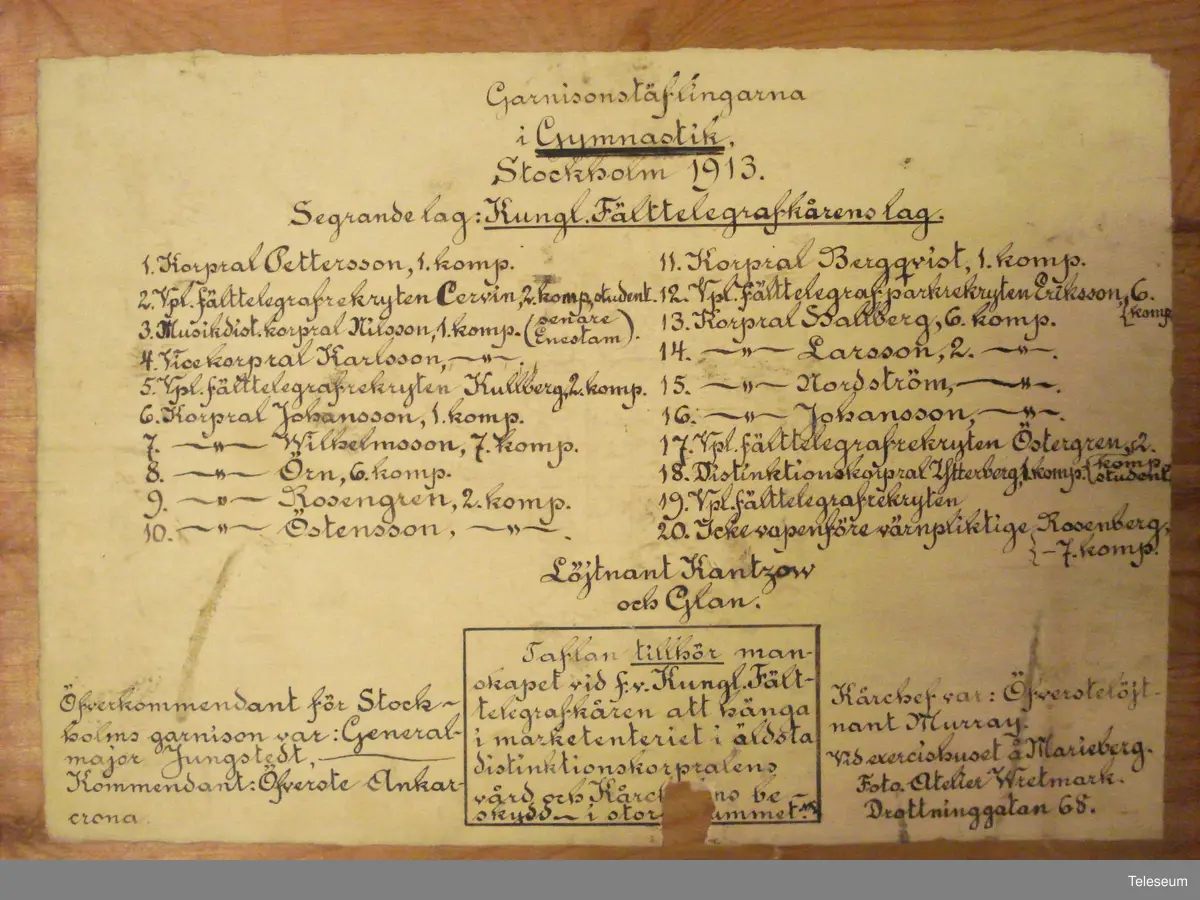 Garnisonstäflingarna
i Gymnastik.
Stockholm 1913.
Segrande lag: Kungl. Fälttelegrafkårens lag.
1. Korpral Pettersson, 1. komp.
2. Vpl. fälttelegrafrekryten Cervin, 2. komp, student.
3. Musikdist. korpral Nilsson, 1. komp. (senare
Enestam).
4. Vicekorpral Karlsson, —"—.
5. Vpl. fälttelegrafrekryten Kullberg, 2. komp.
6. Korpral Johansson, 1. komp.
7. —"— Wilhelmsson, 7. komp.
8. —"— Örn, 6. komp.
9. —"— Rosengren, 2. komp.
10. —"— Östensson, —"—.
11. Korpral Bergqvist, 1. komp.
12. Vpl. Fälttelegrafparkrekryten Eriksson, 6.
{komp
13. Korpral Hallberg, 6. komp.
14. —"— Larsson, 2. —"—.
15. —"— Nordström, —"—.
16. —"— Johansson, —"—.
17. Vpl. fälttelegrafrekryten Östergren, 2.
{komp.
student
18. Distinktionskorpral Ytterberg, 1. komp.
19. Vpl. fälttelegrafrekryten
20. Icke vapenföre värnpliktige Rosenberg,
{—7. komp.
Löjtnant Kantzow
och Glan.
Taflan tillhör man-
skapet vid f.v. Kungl. Fält-
telegrafkåren att hänga
i marketenteriet i äldsta
distinktionskorpralens
vård och Kårch ns be-
skydd — i stor ummet.
Öfverkommendant för Stock-
holms garnison var: General-
major Jungstedt,
Kommendant: Öfverste Ankar-
crona.
Kårchef var: Öfverstelöjt-
nant Murray.
Vid exercishuset å Marieberg.
Foto. Atelier Wretmark.
Drottninggatan 68.
Teleseum